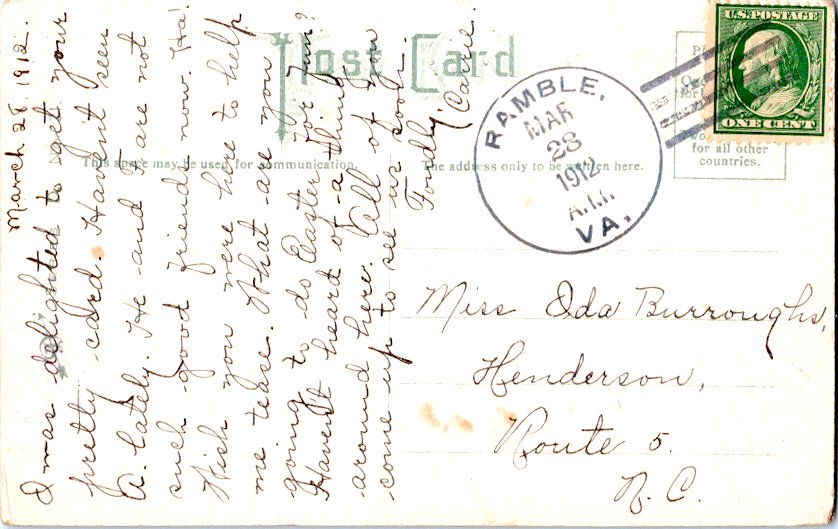 Post Card
This space may be used for communication.
The address only to be written here.
for all other
countries.
U.S. POSTAGE
ONE CENT
RAMBLE,
MAR
28
1912
A.M.
VA.
March 28, 1912.
I was delighted to get your
pretty card. Havent seen
A. lately. He and I are not
such good friends now. Ha!
Wish you were here to help
me tease. What are you
going to do Easter for fun?
Haven't heard of a thing
around here. All of you
come up to see us soon.
Fondly Carrie.
Miss Ida Burroughs,
Henderson,
Route 5.
N. C.